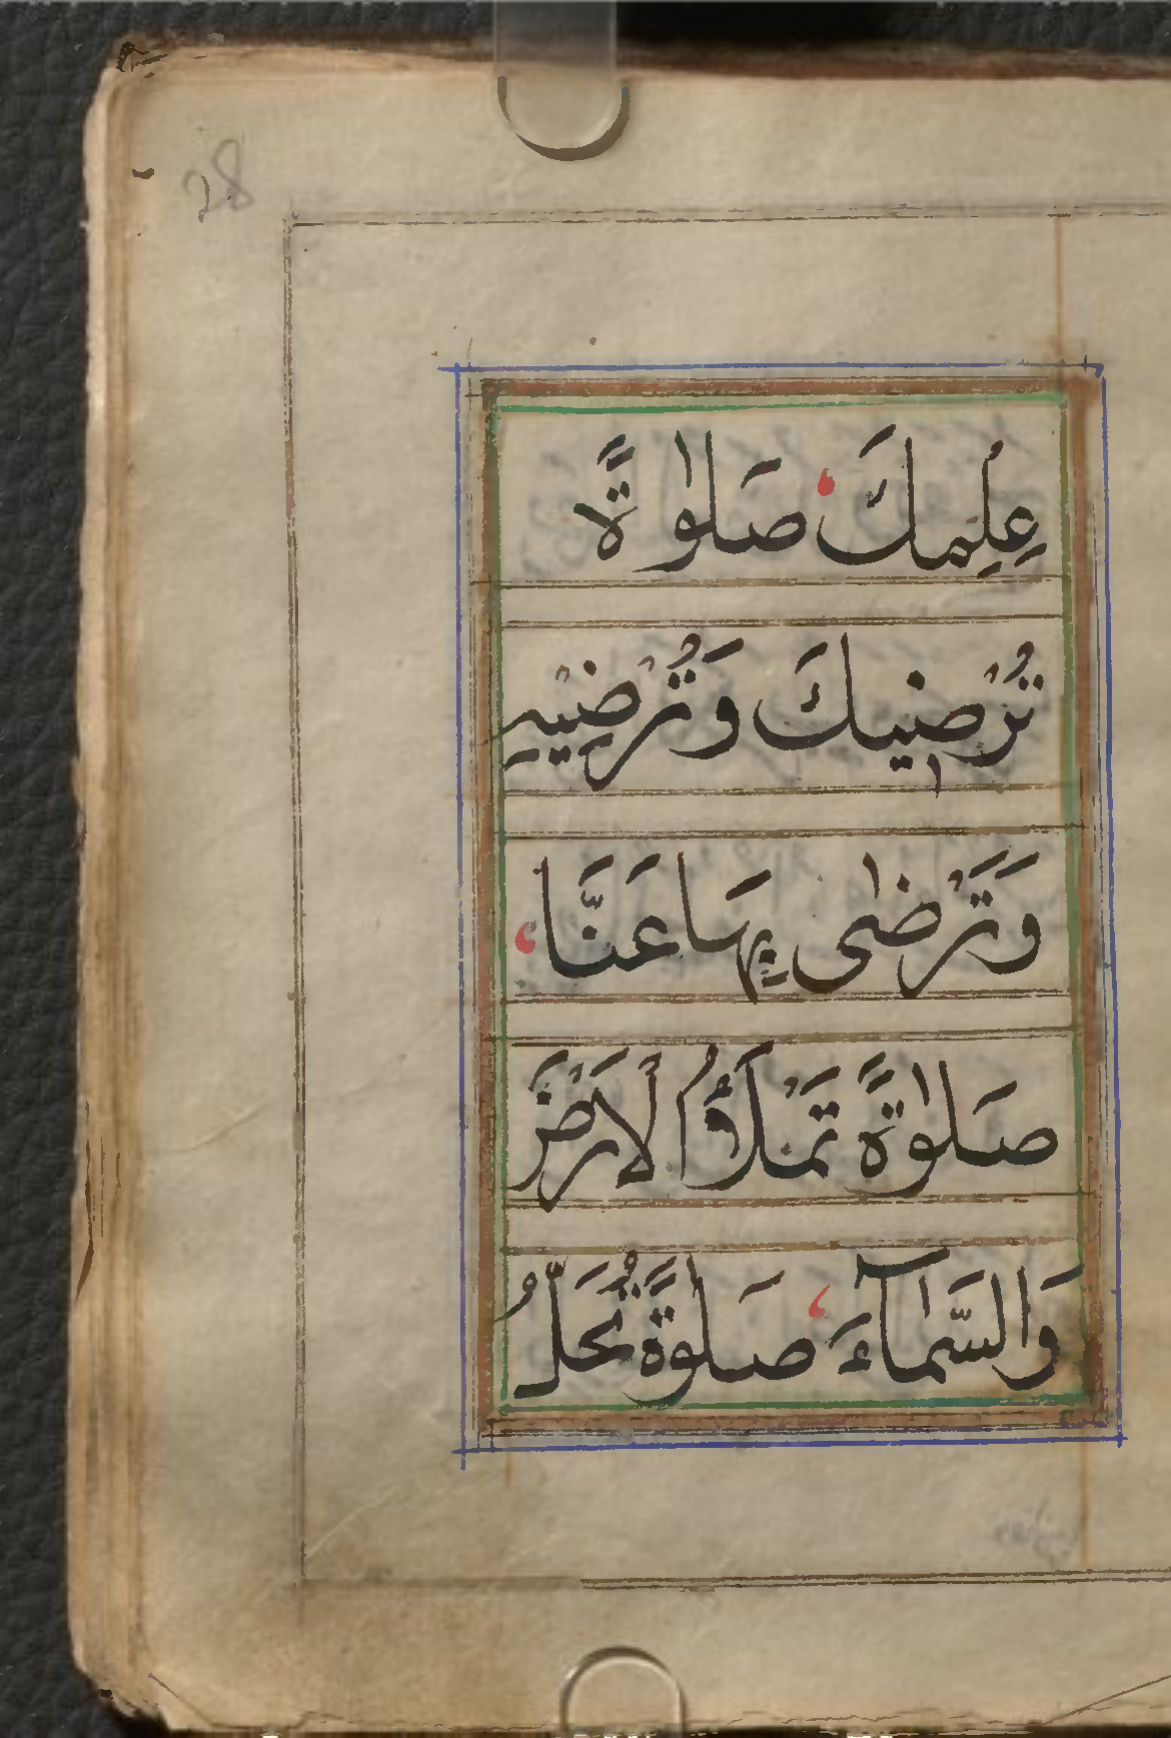 28
عِلْمِكَ صَلٰوةً
تُرْضِيكَ وَتُرْضِيهِ
وَتَرْضٰى بِهَا عَنَّا
صَلٰوةً تَمْلَأُ الْاَرْضَ
وَالسَّمَآءَ صَلٰوةً تُحَلُّ